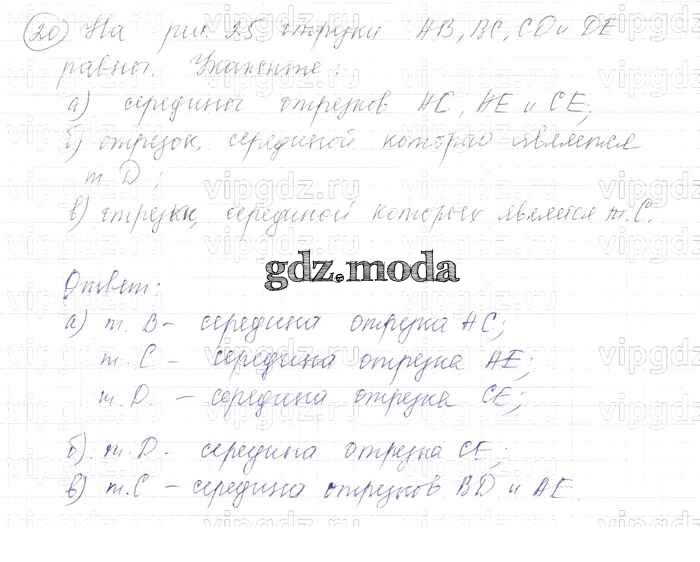 20) На рис. 25 отрезки AB, BC, CD и DE
равны. Укажите:
а) середины отрезков AC, AE и CE;
б) отрезок, серединой которого является
т. D;
в) отрезки, серединой которых является т. C.
gdz.moda
Ответ:
а) т. B - середина отрезка AC;
т. C - середина отрезка AE;
т. D. - середина отрезка CE;
б). т. D - середина отрезка CE;
в) т. C - середина отрезков BD и AE.